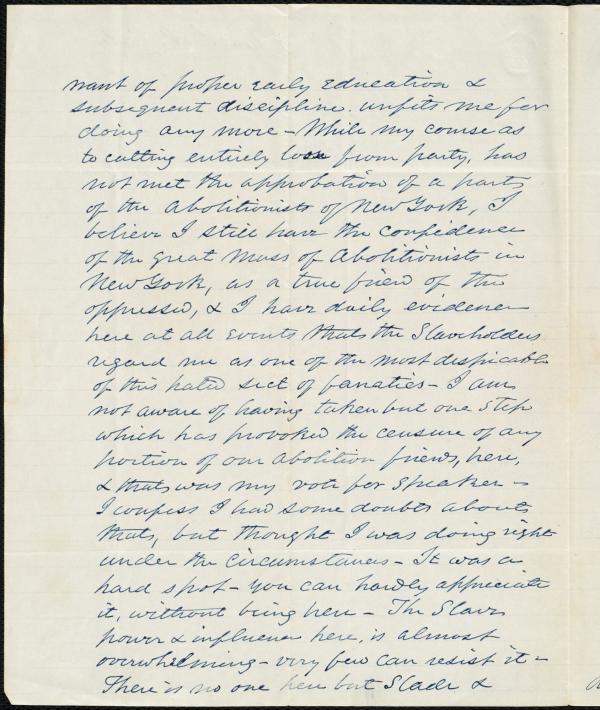 want of proper early education &
subsequent discipline. unfits me for
doing any more – While my course as
to cutting entirely loose from party, has
not met the approbation of a part
of the abolitionists of New York, I
believe I still have the confidence
of the great mass of abolitionists in
New York, as a true friend of the
oppressed, & I have daily evidence
here at all events that the Slaveholders
regard me as one of the most despicable
of this hated sect of fanatics – I am
not aware of having taken but one Step
which has provoked the censure of any
portion of our abolition friends, here,
& that was my vote for Speaker –
I confess I had some doubts about
that, but thought I was doing right
under the circumstances – It was a
hard spot – you can hardly appreciate
it, without being here – The Slave
power & influence here, is almost
overwhelming – very few can resist it –
There is no one here but Slade &